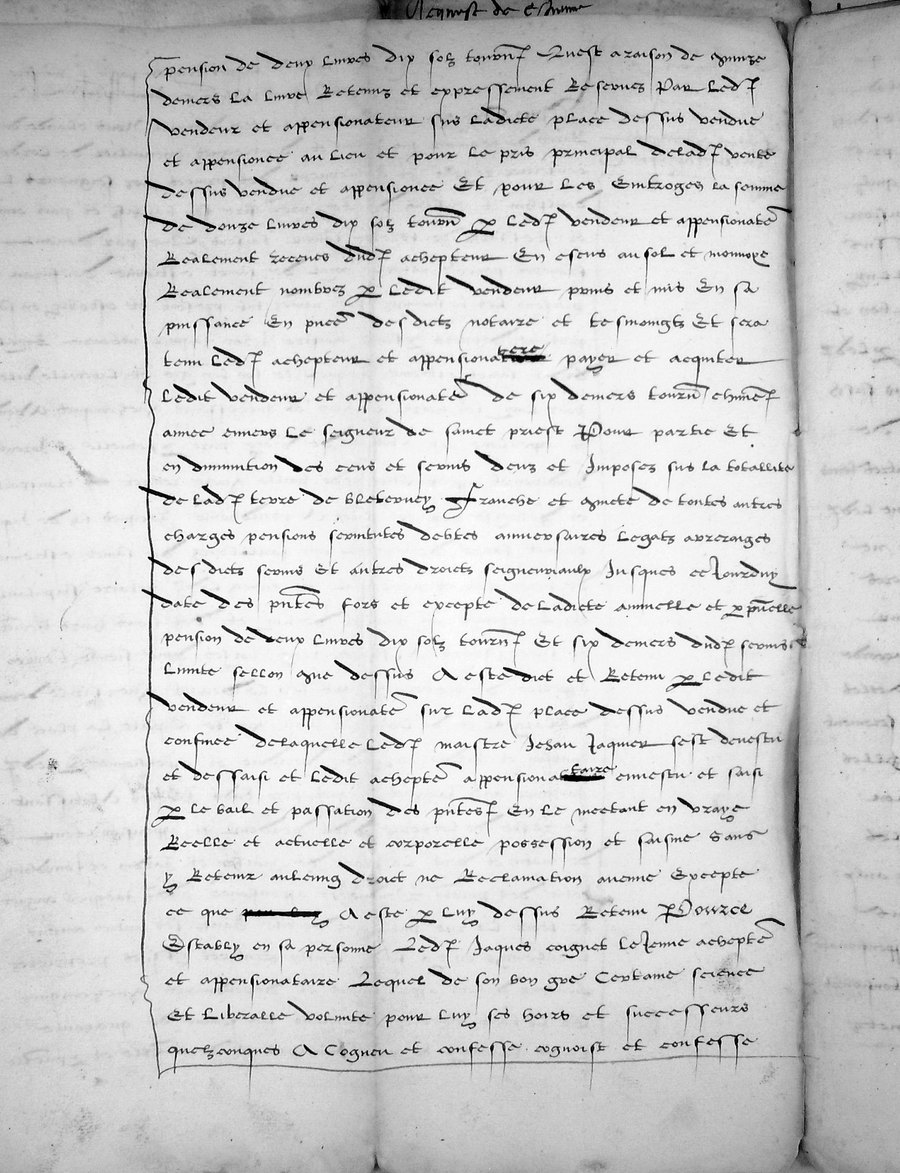 Acquest de
pension de deux livres dix solz tournoi Quest a raison de quinze
deniers la livre Retenuz et expressement Reservez Par led
vendeur et appensionateur sus ladicte place dessus vendue
et appensionee au lieu et pour le pris principal delad vente
dessus vendue et appensionee Et pour les Entroges la somme
de douze livres dix solz tourn p led vendeur et appensionate
Realement receues dud achepteur En escus au sol et monnoye
Realement nombrez p ledit vendeur prins et mis En sa
puissance En pnce desdictz notaire et tesmoingtz Et sera
tenu led achepteur et appensionatere payer et acquiter
ledit vendeur et appensionate de six deniers tourn chm
annee envers le seigneur de sainct priest Pour partie Et
en diminution des cens et servis deuz et Imposez sus la totallite
de lad terre de bleterney Franche et quicte de toutes autres
charges pensions servitutes debtes anniversaires legatz arreraiges
desdictz servis Et autres droictz seigneuriaulx Jusques ce Jourduy
date des pntes fors et excepte deladicte annuelle et p pnelle
pension de deux livres dix solz tourn Et six deniers dud servis
Lunite sellon que dessus A este dict et Retenu p ledit
vendeur et appensionate sur lad place dessus vendue et
confinee delaquelle led maistre Jehan Jaquier sest devestu
et dessaisi et ledit achepte appensionataire envestu et saisi
p le bail et passation des pntes En le mectant en vraye
Reelle et actuelle et corporelle possession et saisine sans
y Retenir aulcung droict ne Reclamation aucune Excepte
ce que A este p luy dessus Retenu Pource
Estably en sa personne led Jaques coignet le Jeune achepte
et appensionataire Lequel de son bon gre Certaine science
Et Liberalle volunte pour luy ses hoirs et successeurs
quelzconques A Cogneu et confesse cognoist et confesse